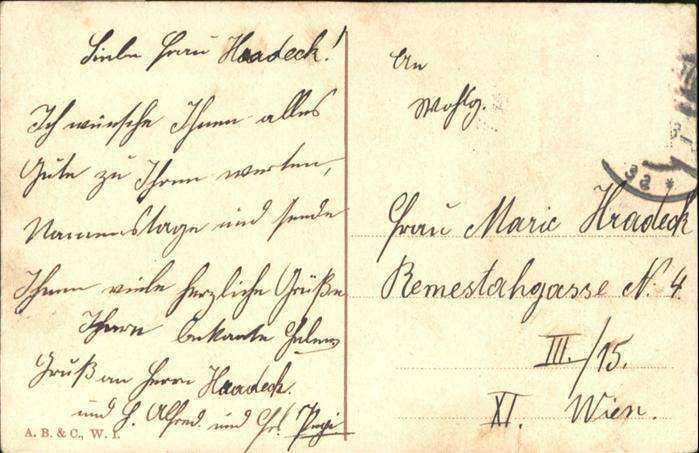 Liebe Frau Hradeck!
Ich wünsche Ihnen alles
Gute zu Ihrem werten,
Namenstage und sende
Ihnen viele herzliche Grüße
Ihnen bekannte
Gruß an Herrn Hradeck.
und H. Alfred. und Frl.
A. B. & C., W. I.
An
Wohlg.
Frau Marie Hradeck
Remestahgasse N. 4
III./15.
XI. Wien.